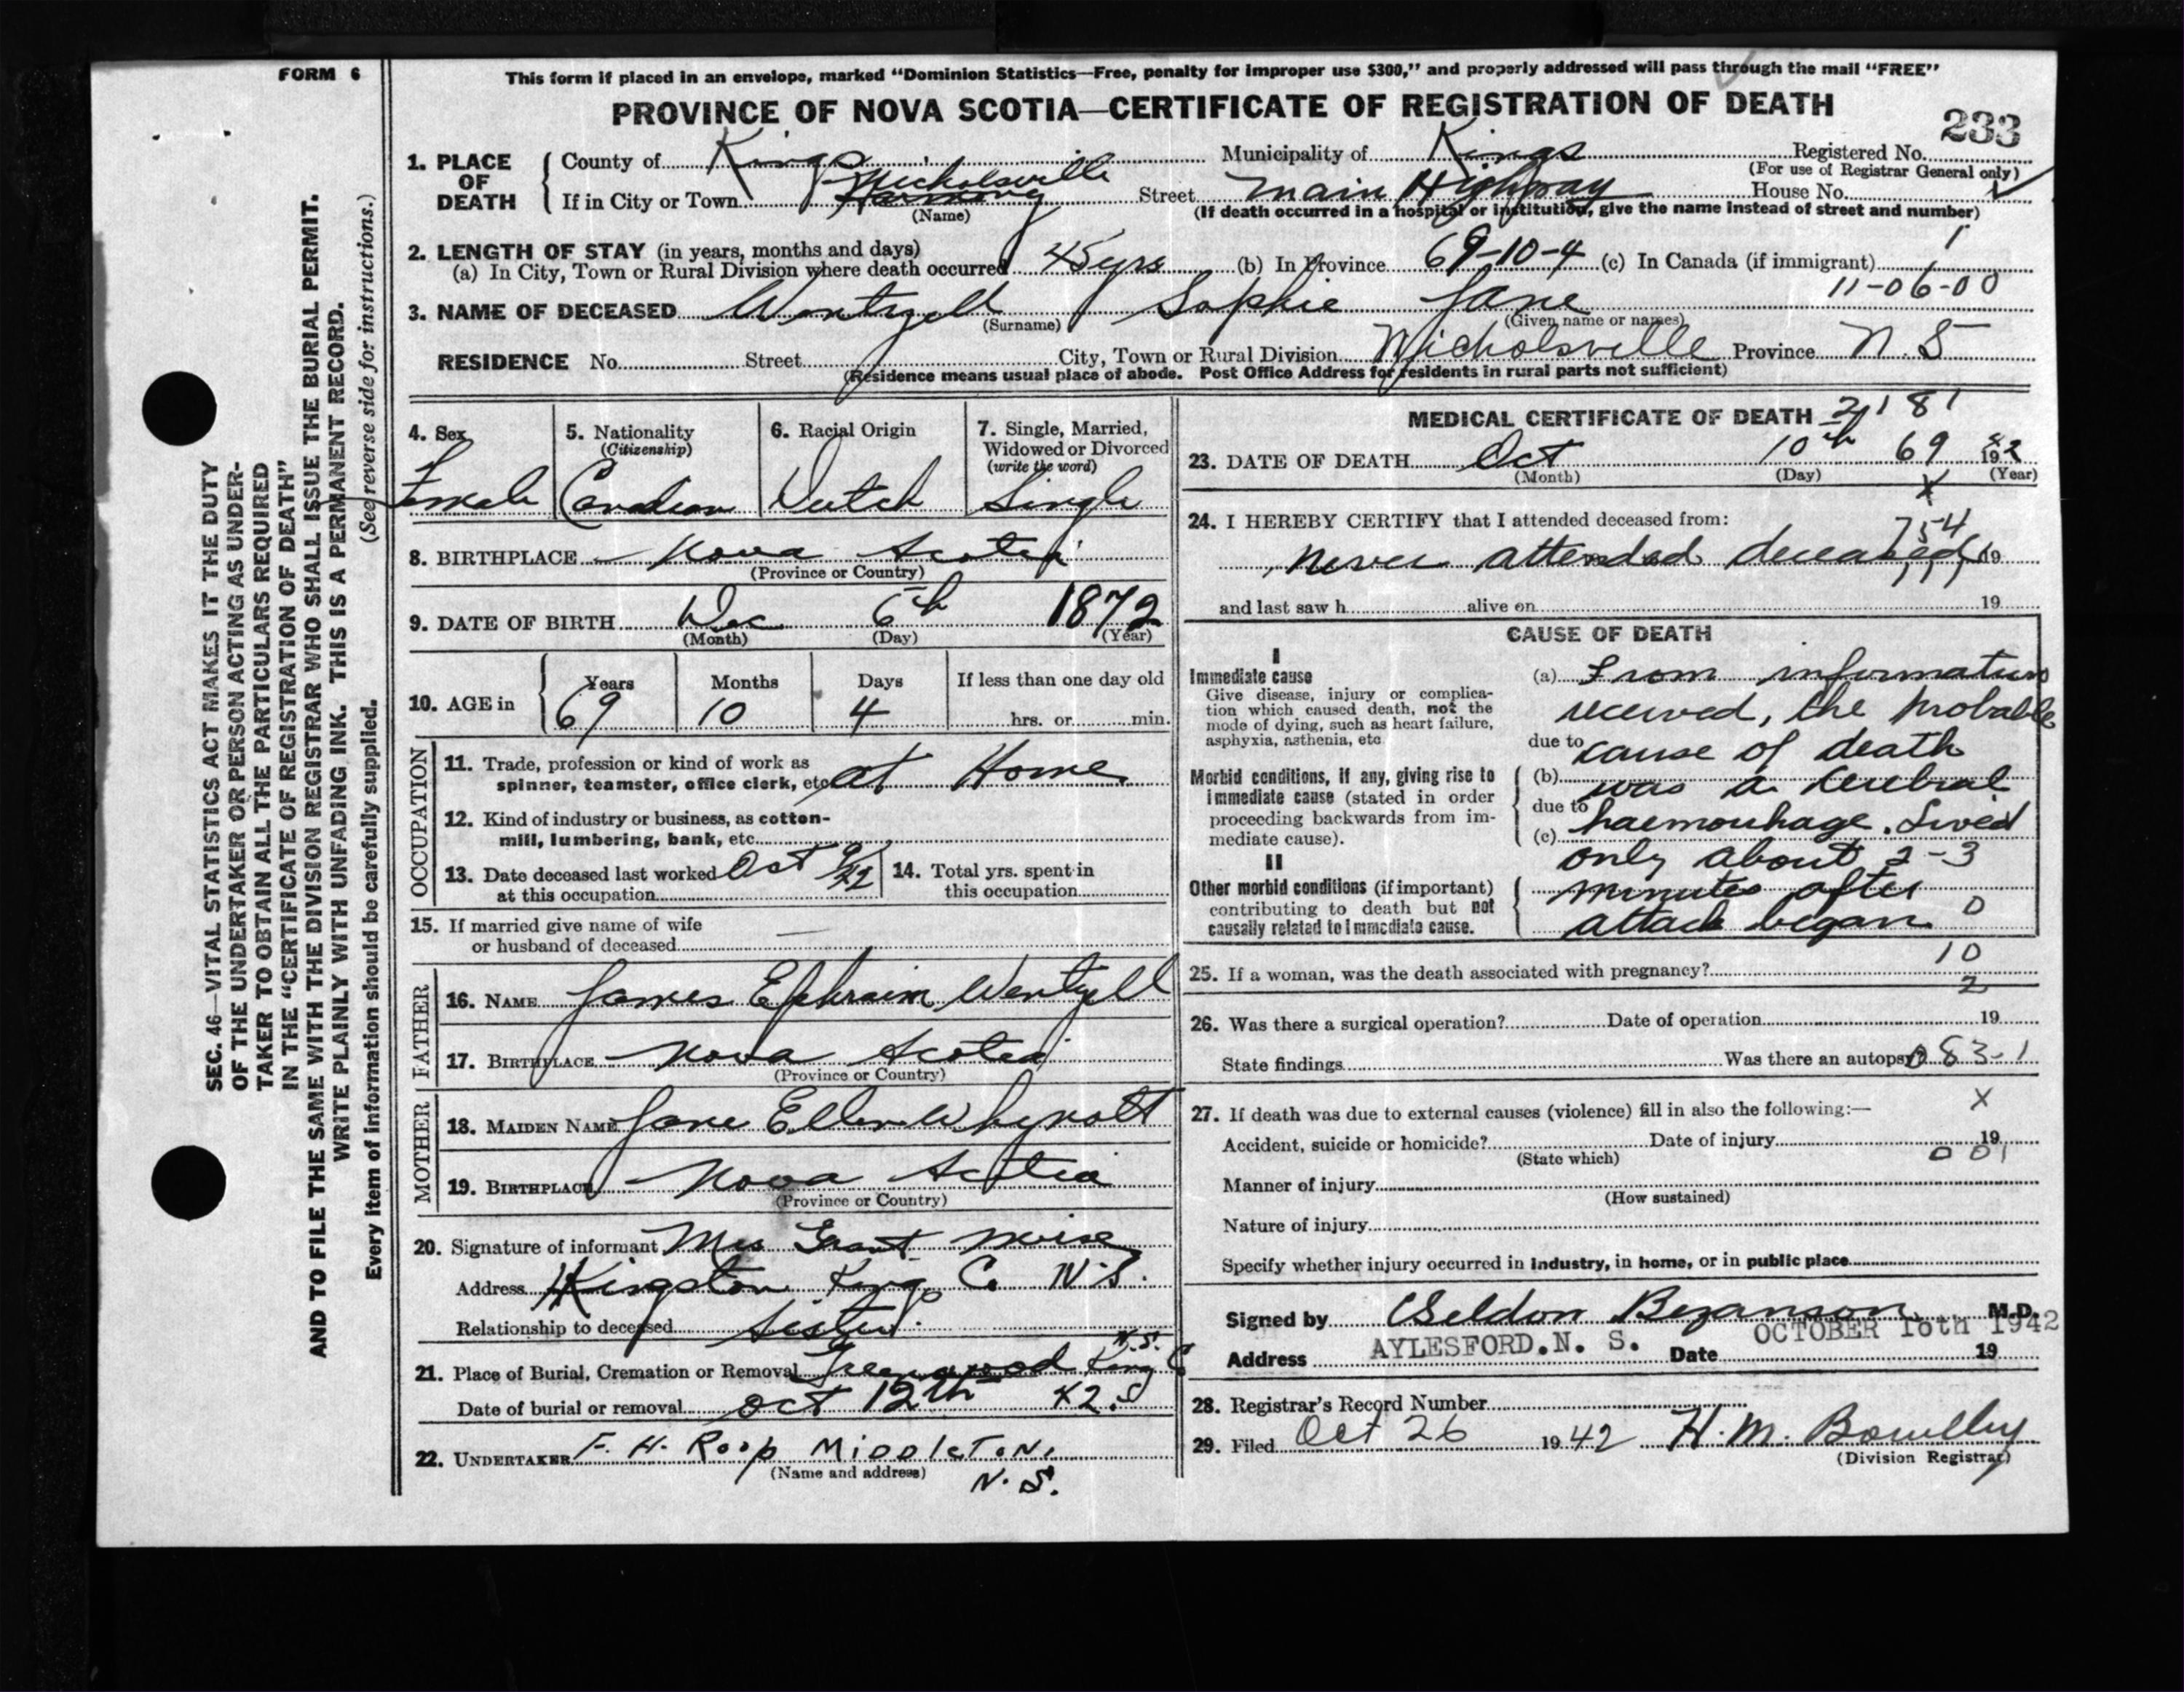 FORM 6
This form if placed in an envelope, marked "Dominion Statistics—Free, penalty for improper use $300," and properly addressed will pass through the mail "FREE"
PROVINCE OF NOVA SCOTIA—CERTIFICATE OF REGISTRATION OF DEATH
233
1. PLACE OF DEATH
County of Kings Municipality of Kings Registered No.
(For use of Registrar General only)
Nicholsville
If in City or Town Harmony Street Main Highway House No.
(Name) (If death occurred in a hospital or institution, give the name instead of street and number)
2. LENGTH OF STAY (in years, months and days)
(a) In City, Town or Rural Division where death occurred 45 yrs (b) In Province 69-10-4 (c) In Canada (if immigrant)
11-06-00
3. NAME OF DECEASED Wentzell Sophie Jane
(Surname) (Given name or names)
RESIDENCE No. Street City, Town or Rural Division Nicholsville Province N.S
(Residence means usual place of abode. Post Office Address for residents in rural parts not sufficient)
4. Sex
Female
5. Nationality
(Citizenship)
Canadian
6. Racial Origin
Dutch
7. Single, Married,
Widowed or Divorced
(write the word)
Single
8. BIRTHPLACE Nova Scotia
(Province or Country)
9. DATE OF BIRTH Dec 6th 1872
(Month) (Day) (Year)
10. AGE in
Years Months Days If less than one day old
69 10 4 hrs. or min.
OCCUPATION
11. Trade, profession or kind of work as
spinner, teamster, office clerk, etc. at Home
12. Kind of industry or business, as cotton-
mill, lumbering, bank, etc.
13. Date deceased last worked Oct 9/42
at this occupation
14. Total yrs. spent in
this occupation
15. If married give name of wife
or husband of deceased —
FATHER
16. NAME James Ephraim Wentzell
17. BIRTHPLACE Nova Scotia
(Province or Country)
MOTHER
18. MAIDEN NAME Jane Ellen Whynott
19. BIRTHPLACE Nova Scotia
(Province or Country)
20. Signature of informant Mrs Grant
Address Kingston Kings Co N.S.
Relationship to deceased Sister.
21. Place of Burial, Cremation or Removal Greenwood Kings Co N.S.
Date of burial or removal Oct 12th 42
22. UNDERTAKER F. H. Roop Middleton,
(Name and address) N. S.
MEDICAL CERTIFICATE OF DEATH
2181
23. DATE OF DEATH Oct 10th 69 1942
(Month) (Day) (Year)
X
24. I HEREBY CERTIFY that I attended deceased from:
754
never attended deceased 19
and last saw h alive on 19
CAUSE OF DEATH
I
Immediate cause
Give disease, injury or complica-
tion which caused death, not the
mode of dying, such as heart failure,
asphyxia, asthenia, etc
Morbid conditions, if any, giving rise to
immediate cause (stated in order
proceeding backwards from im-
mediate cause).
II
Other morbid conditions (if important)
contributing to death but not
causally related to immediate cause.
(a) From information
received, the probable
due to cause of death
(b) was a cerebral
due to haemorrhage. Lived
(c) only about 2-3
minutes after
attack began
0
10
25. If a woman, was the death associated with pregnancy?
2
26. Was there a surgical operation? Date of operation 19
State findings Was there an autopsy?
083-1
27. If death was due to external causes (violence) fill in also the following:—
X
Accident, suicide or homicide? Date of injury 19
(State which)
001
Manner of injury
(How sustained)
Nature of injury
Specify whether injury occurred in industry, in home, or in public place
Signed by Seldon Bezanson M.D.
Address AYLESFORD. N. S. Date OCTOBER 16th 1942
19
28. Registrar's Record Number
29. Filed Oct 26 1942 H. M.
(Division Registrar)
SEC. 46—VITAL STATISTICS ACT MAKES IT THE DUTY
OF THE UNDERTAKER OR PERSON ACTING AS UNDER-
TAKER TO OBTAIN ALL THE PARTICULARS REQUIRED
IN THE "CERTIFICATE OF REGISTRATION OF DEATH"
AND TO FILE THE SAME WITH THE DIVISION REGISTRAR WHO SHALL ISSUE THE BURIAL PERMIT.
WRITE PLAINLY WITH UNFADING INK. THIS IS A PERMANENT RECORD.
Every item of information should be carefully supplied. (See reverse side for instructions.)